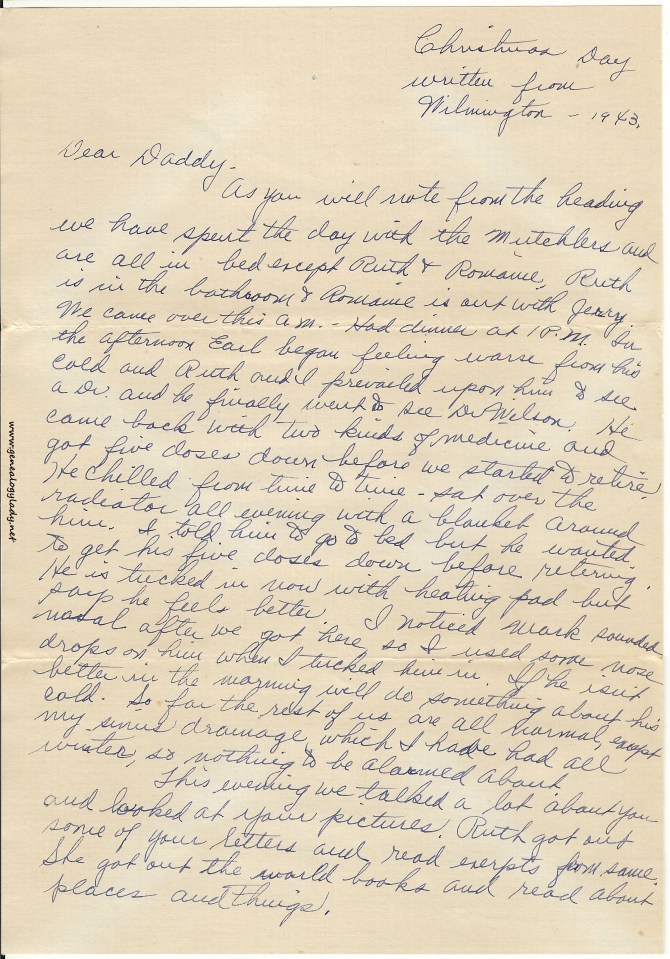 Christmas Day
written from
Wilmington - 1943.
Dear Daddy.
As you will note from the heading
we have spent the day with the Mutchlers and
are all in bed except Ruth & Romaine, Ruth
is in the bathroom & Romaine is out with Jerry.
We came over this a.m. - Had dinner at 1 P.M. In
the afternoon Earl began feeling worse from his
cold and Ruth and I prevailed upon him to see
a Dr. and he finally went to see Dr Wilson. He
came back with two kinds of medicine and
got five doses down before we started to retire
He chilled from time to time - sat over the
radiator all evening with a blanket around
him. I told him to go to bed but he wanted
to get his five doses down before retiring.
He is tucked in now with heating pad but
says he feels better. I noticed Mark sounded
nasal after we got here so I used some nose
drops on him when I tucked him in. If he isn't
better in the morning will do something about his
cold. So far the rest of us are all normal, except
my sinus drainage which I have had all
winter, so nothing to be alarmed about.
This evening we talked a lot about you
and looked at your pictures. Ruth got out
some of your letters and read exerpts from some.
She got out the world books and read about
places and things.
www.genealogylady.net